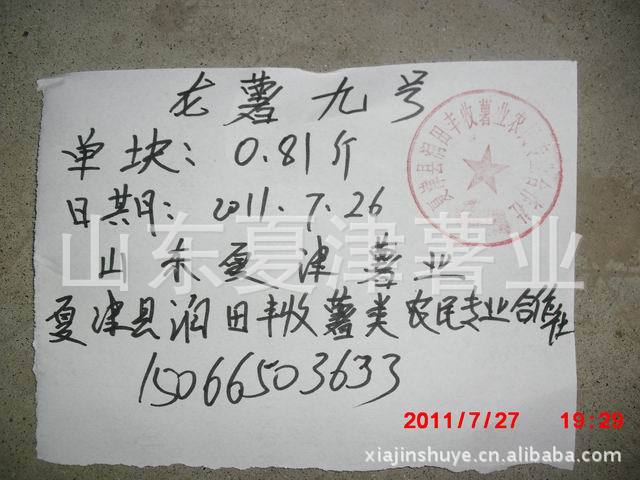 龙薯九号
单块：0.81斤
日期：2011.7.26
山东夏津薯业
夏津县润田丰收薯类农民专业合作社
15066503633
山东夏津薯业
2011/7/27 19:29
xiajinshuye.cn.alibaba.com